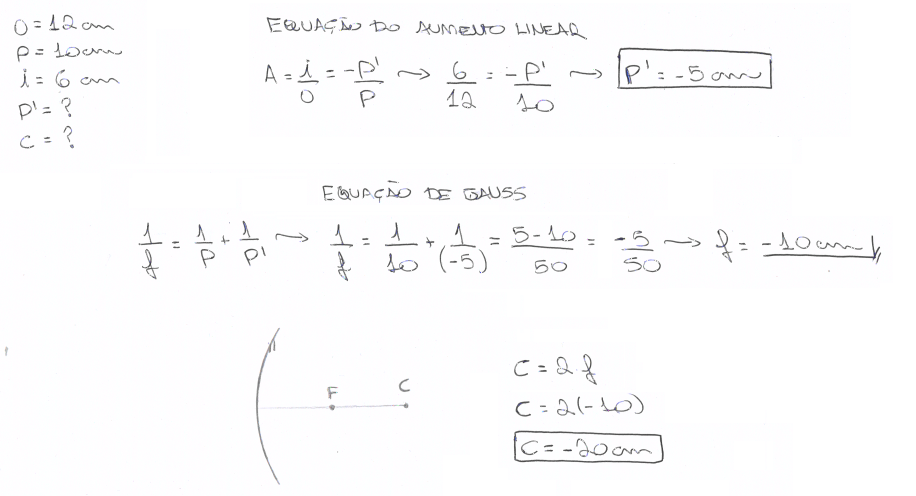 O = 12 cm
P = 10 cm
i = 6 cm
P' = ?
C = ?
EQUAÇÃO DO AUMENTO LINEAR
A = i/O = -P'/P → 6/12 = -P'/10 → P' = -5 cm
EQUAÇÃO DE GAUSS
1/f = 1/P + 1/P' → 1/f = 1/10 + 1/(-5) = 5-10/50 = -5/50 → f = -10 cm
F C
C = 2f
C = 2(-10)
C = -20 cm